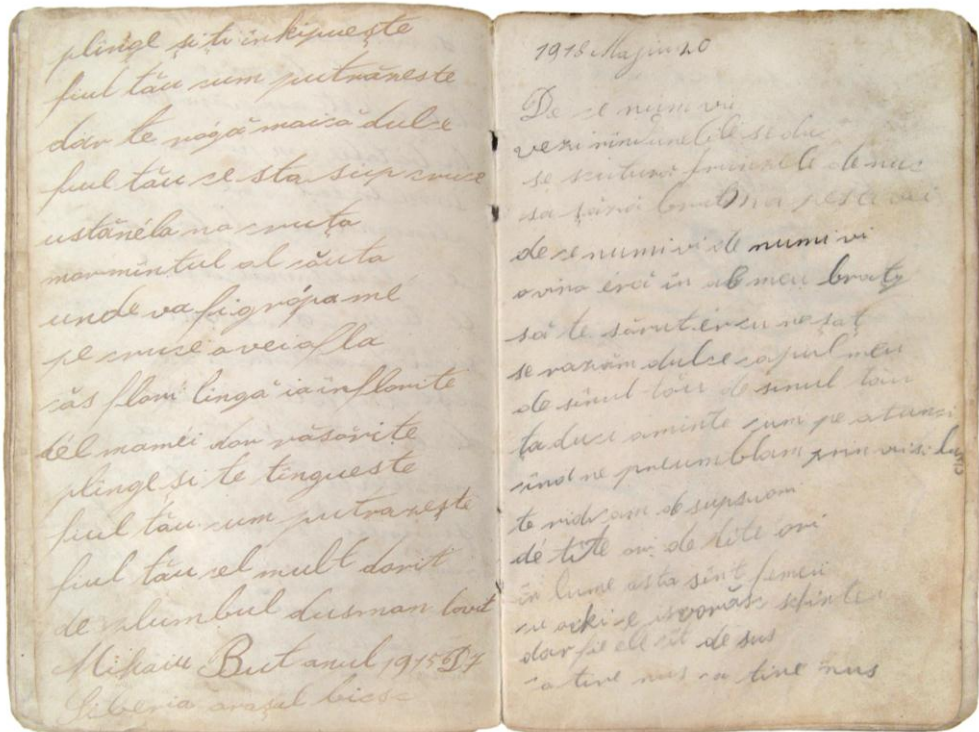 plinge și ti inkipuește
fiul tău cum putrăneste
dar te rógă maică dulce
fiul tău ce sta sup cruce
ustănéla na cruța
mormîntul al căuta
unde va fi grópa mé
pe cruce o vei afla
căs flori lingă ia înflorite
dél maméi dor răsărite
plinge și te tingueste
fiul tău cum putrazește
fiul tău cel mult dorit
de plumbul dusman lovit
Mihaiu But anul 1915 D7
Siberia orașul
1918 Majiu 20
De ce numi vii
vezi rindunelele se duc
se scutură frunzele de nuc
sa șază bruma peste vii
de ce numi vi de numi vi
o vino eră în al meu braty
să te sărut er cu nesaț
se razăm dulce capul meu
de sinul tău de sinul tău
ta duci aminte cum pe atunci
cind ne preumblam prin vii și lunci
te ridicam de supsuori
de tîte ori de tîte ori
în lume asta sînt femei
cu ocki ce isvorăsc skintei
dar fie ele cît de sus
ca tine nus ca tine nus